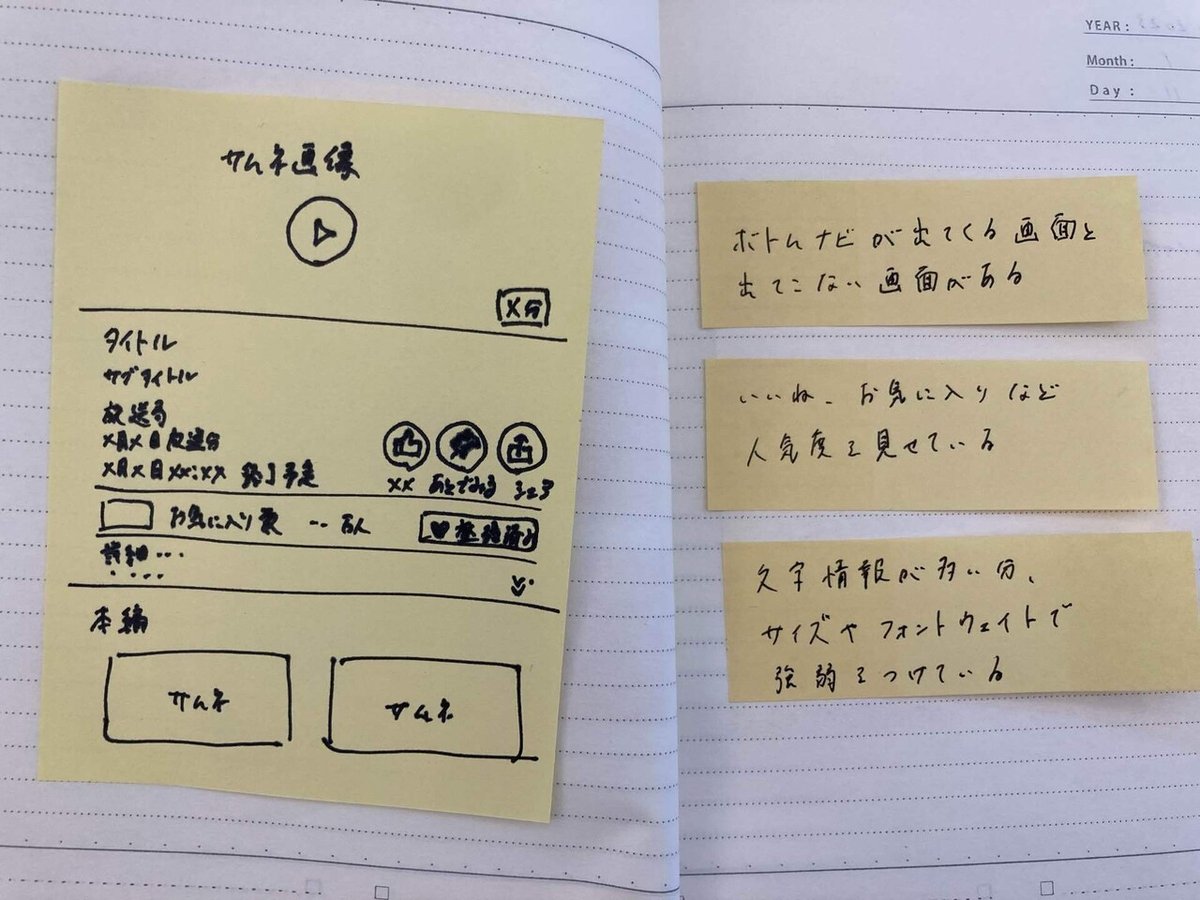 サムネ画像
X分
タイトル
サブタイトル
放送局
X月X日放送分
X月X日XX:XX 終了予定
XX あとでみる シェア
お気に入り数 ‥万人
登録済み
詳細…
本編
サムネ
サムネ
YEAR :
Month :
Day :
ボトムナビが出てくる画面と
出てこない画面がある
いいね、お気に入りなど
人気度を見せている
文字情報が多い分、
サイズやフォントウェイトで
強弱をつけている